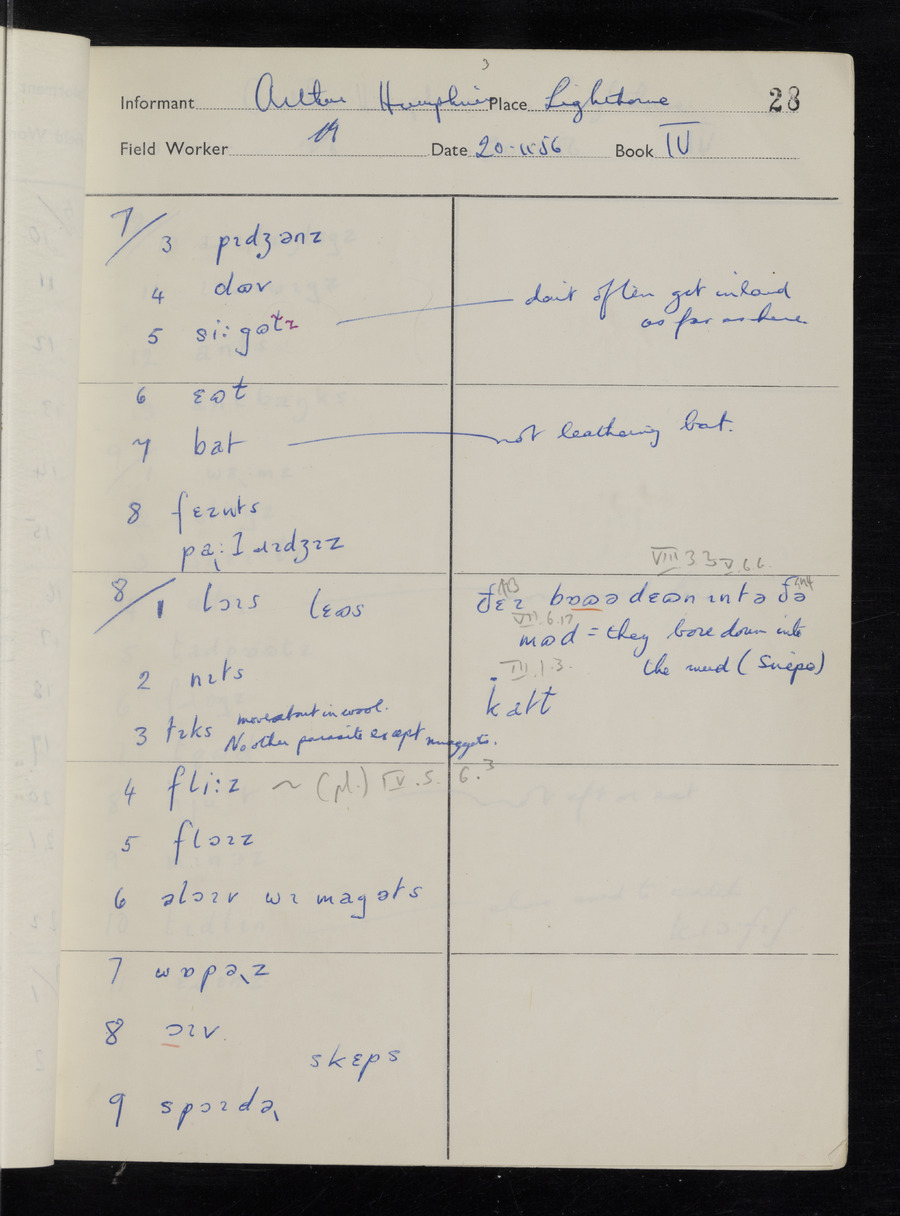 3
Informant Arthur Humphries Place Lighthorne 28
Field Worker Date 20-11-56 Book IV
7/3 pɪdʒənz
4 dɷv
5 si:gɷɫz don't often get inland
as far as here
6 ɛɷt
7 bat not leathering bat.
8 fɛzn̩ts
pa:ʈɹɪdʒɪz
VIII 3 3 V.6.6.
8/1 lɔɪs lɛɷs ðɛɪ bɒɷə dɛɷn ɪntə ðə
VII.6.17
mɷd = they bore down into
the mud (Snipe)
2 nɪts III.1.3.
3 tɪks move about in wool. kaɫt
No other parasite except maggots.
4 fli:z ~ (pl.) IV.5. 6.3
5 flɔɪz
6 əlɔɪv wɪ magəts
7 wɒpəz
8 ɔɪv
skɛps
9 spɔɪdə